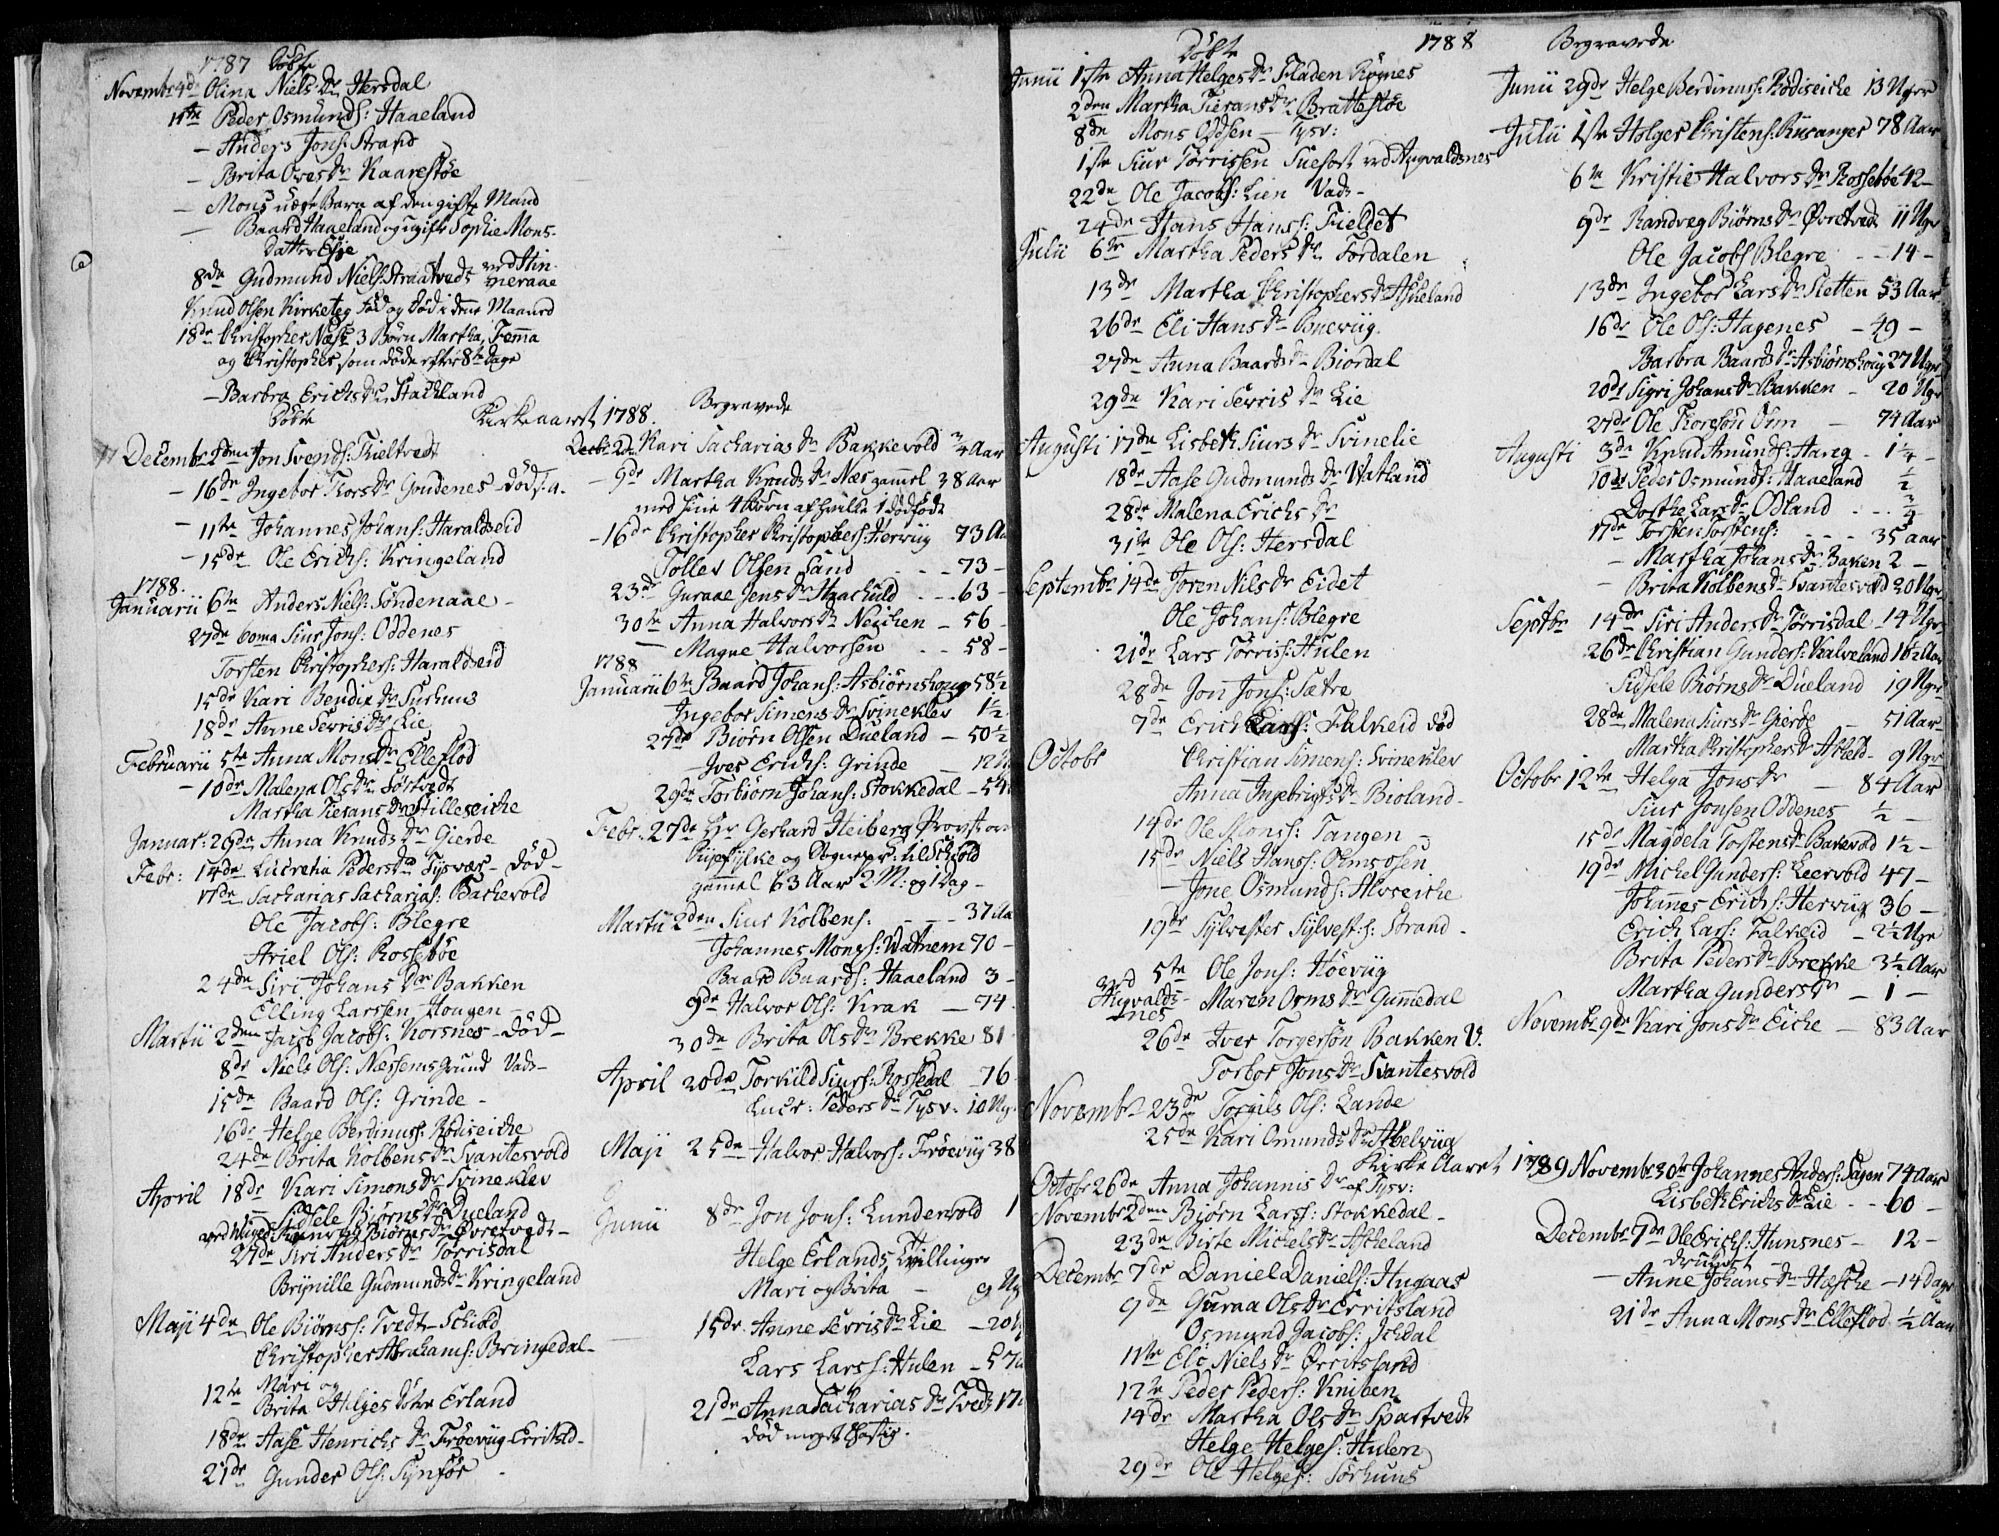 1787 Döbte
Novembr 4de Olina Niels Dr Hersdal
11te Peder Osmunds: Haaeland
— Anders Jons: Strand
— Brita Oves Dr Kaarestöe
— Mons uægte Barn af den gifte Mand
— Baard Haaeland og ugifte Sophie Mons-
Datter Eige
8de Gudmund Niels: Straatvedt ved Stin
Knud Olsen Kirketeg föd og död i denne Maaned
18de Christopher Næss 3 Börn Martha, Femma
og Christopher som döde efter 8te Dage
— Barbra Erichs Dr Stachland
Döbte
Decembr 2den Jon Svends: Kieltvedt
— 16de Ingebor Thors Dr Grudenes död
— 11te Johannes Johans: Haraldseid
— 15de Ole Erichs: Kringeland
1788.
Januarii 6te Anders Niels: Söndenaae -
27de Siur Jons: Oddenes
Torsten Christophers: Haraldseid
15de Kari Bendix Dr Surhuus
18de Anne Serris Dr Lie
Februarii 5te Anna Mons Dr Elleflod
— 10de Malena Ols Dr Sörtvedt
Martha Tierans Dr Hilleseiche
Januar: 26de Anna Knuds Dr Gierde
Febr: 14de Lucretia Peders Dr Tysvær - Död -
17de Sacharias Sacharias: Backevold
Ole Jacobs: Blegre
Ariel Ols: Rosseböe
24de Siri Johans Dr Bakken
Elling Larssen Hougen -
Martii 2den Jacob Jacobs: Korsnes - Död -
8de Niels Ols: Næssemsgrund Vads -
15de Baard Ols: Grinde -
16de Helge Berdinus: Rödiseiche
24de Brita Kolbens Dr Svantesvold
April 18de Kari Simons Dr Svinekler
Sidsele Biörns Dr Dueland
Biörns Dr Övretvedt -
27de Siri Anders Dr Törrisdal
Brynille Gudmunds Dr Kringeland
Maji 4de Ole Biörns: Tvedt Schiold
Christopher Abrahams: Bringedal -
12te Mari og
Brita Helges Döttre Erland
18de Aase Henrichs Dr Fröevig Erritsld -
21de Gunder Ols: Synför -
Kirkeaaret 1788. Begravede
Decbr 2de Kari Sacharias Dr Bakkevold ¾ Aar
— 9de Martha Knuds Dr Næs gammel 38 Aar
med sine 4 Börn af hvilke 1 dödfödt
— 16de Christopher Christophers: Hervüg 73 Aa
Tollev Olsen Sand - - - 73 -
23de Guraae Jens Dr Haachuld - - 63 -
30te Anna Halvors Dr Neichen - 56 -
— Magne Halvorsen - - 58 -
1788
Januarii 6te Baard Johans: Asbiörnshoug 58½
Ingebor Simens Dr Svinekler 1½
27de Biörn Olsen Dueland - 50½
— Iver Erichs: Grinde - 12 U
29de Torbiörn Johans: Stokkedal - 54
Febr: 27de Hr Gerhard Heiberg Provst over
Ryefylke og Sognepr: til Schiold
gammel 63 Aar 2 M: og 1 Dag -
Martii 2den Siur Kolbens: - - - 37 Aa
Johannes Monss: Vatnem 70 -
Baard Baards: Haaeland 3 -
9de Halvor Ols: Krak - 74.
30de Brita Ols Dr Brekke 81 -
April 20de Torkild Siurs: Rossedal - 76
Lucr: Peders Dr Tysv: 10 Ug.
Maji 25de Halvor Halvors: Fröevüg 38
Junii 8de Jon Jons: Lundervold 1
Helge Erlands Tvillinger
Mari og Brita - 9 Ug
15de Anne Serris Dr Lie - 20 U
Lars Larss: Hulen - 57
21de Anna Zacharias Dr Tvedt 17
död meget hastig.
Döbte 1788
Junii 1ste Anna Helges Dr Fladen Rögnes
2den Martha Tierans Dr Brattestöe
8de Mons Oddsen — Tysv:
1ste Siur Törrissen Suesort ved Augvaldsnes
22de Ole Jacobs: Lien Vads -
24de Hans Hanss: Fieldet
Julii 6te Martha Peders Dr Fördalen
13de Martha Christophers Dr Asheland
26de Eli Hans Dr Bneviig.
27de Anna Baards Dr Biordal
29de Kari Serris Dr Lie
Augusti 17de Lisbeth Siurs Dr Svinelie
18de Aase Gudmunds Dr Vatland
28de Malena Erichs Dr
31te Ole Ols: Hersdal
Septembr 14de Joren Nils Dr Eidet
Ole Johans: Blegre
21de Lars Törriss: Hulen
28de Jon Jons: Sætre
7de Erich Larss: Falkeid död
Octobr Christian Simens: Svinekler
Anna Ingebrigts Dr Bioland -
14de Ole Monss: Tangen -
15de Niels Hanss: Olmsosen
— Jone Osmunds: Alvseiche
19de Sylvester Sylvest: s: Strand -
ved Augvalds-nes 5te Ole Jons: Höeviig
Maren Orms Dr Gunnedal
26de Iver Torgersön Bakken V.
Torbor Jons Dr Svantesvold
Novembr 23de Torgils Ols: Lande
25de Kari Omunds Dr Abelviig
Kirke Aaret 1789
Octobr 26de Anna Johannis Dr af Tysv:
Novembr 2den Biörn Larss: Stokkedal -
23de Birte Michels Dr Asheland
Decembr 7de Daniel Daniels: Hugaas
9de Guraa Ols Dr Erritsland
Osmund Jacobs: Ichdal
11te Else Niels Dr Örritsland
12te Peder Peders: Kniben
14de Martha Ols Dr Spartvedt
Helge Helges: Hulen
29de Ole Helges: Sörhuus
Begravede
Junii 29de Helge Berdinus: Rödiseiche 13 Uger
Julii 1ste Holger Christens: Rusanger 78 Aar
6te Kristie Halvors Dr Rosseböe 42 -
9de Randveg Biörns Dr Övretvedt 11 Ugr
Ole Jacobs Blegre - - 14 -
13de Ingebor Lars Dr Sletten 53 Aar
16de Ole Ols: Hagenes - 49 -
Barbra Baards Dr Asbiörnshoug 27 Uger
20de Sigri Johans Dr Bakken - 20 Ugr
27de Ole Thoresön Öen - 74 Aar
Augusti 3de Knud Amunds: Haug - 1¼ -
10de Peder Osmunds: Haaeland ½
Dorthe Lars Dr Odland - - ¾
17de Torsten Torstens: - - - 35 aar
— Martha Johans Dr Baken 2 -
— Brita Kolbens Dr Svantesvold 20 Uger
Septbr 14de Siri Anders Dr Törrisdal 14 Uger
26de Christian Gunders: Kalveland 16½ Aar
Sidsele Biörns Dr Dueland 19 Uger
28de Malena Siurs Dr Gieröe - 51 Aar
Martha Christophers Dr Asheld - 9 Ugr
Octobr 12te Helga Jons Dr - 84 Aar
Siur Jonsen Oddenes ½ -
15de Magdela Torstens Dr Bakevold 1½ -
19de Michel Gunders: Leervold 47 -
Johannes Erichs: Herviig 36 -
Erich Lars: Falkeid - 2½ Uge
Brita Peders Dr Brekke 3½ Aar
Martha Gunders Dr - 1 -
Novembr 9de Kari Jons Dr Eiche - 83 Aar
Novembr 30te Johannes Anders: Sagen 74 Aar
Lisbeth Erichs Dr Lie - - 60 -
Decembr 7de Ole Erichs: Hunsnes - 12 -
druknet
— Anne Johans Dr Hesche - 14 Dage
21de Anna Mons Dr Elleflod ½ Aar